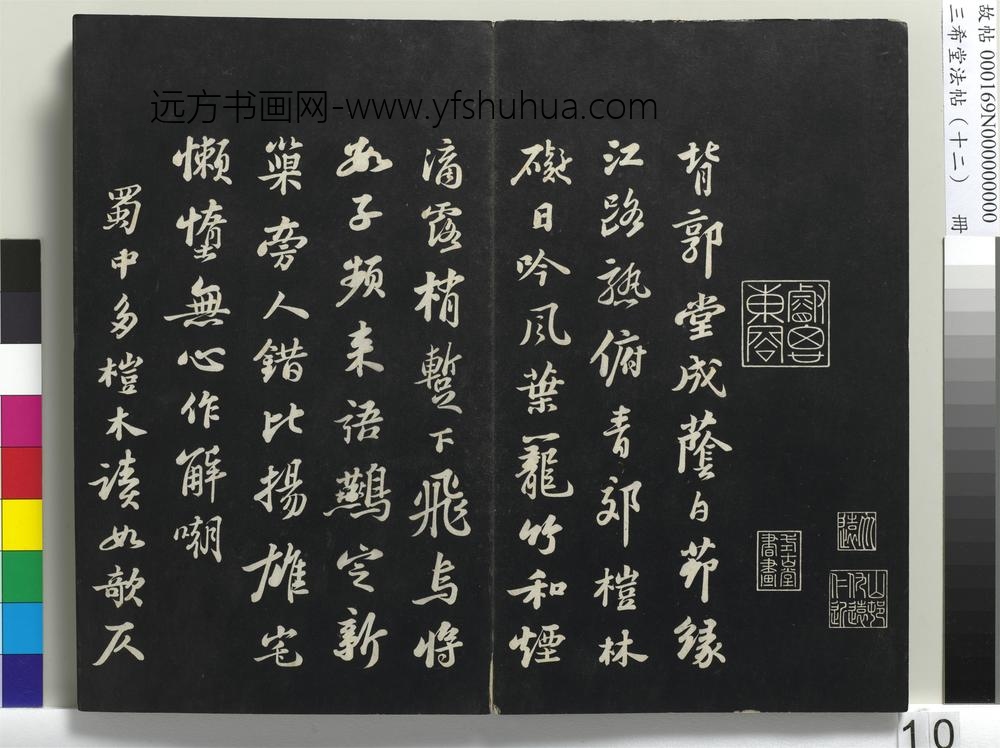 远方书画网-www.yfshuhua.com
故帖 000169N000000000
三希堂法帖（十二） 冊
背郭堂成蔭白茆緣
江路熟俯青郊榿林
礙日吟風葉籠竹和煙
滴露梢蹔下飛烏將
數子頻來語鷰定新
巢旁人錯比揚雄宅
懶惰無心作解嘲
蜀中多榿木讀如欹仄
10